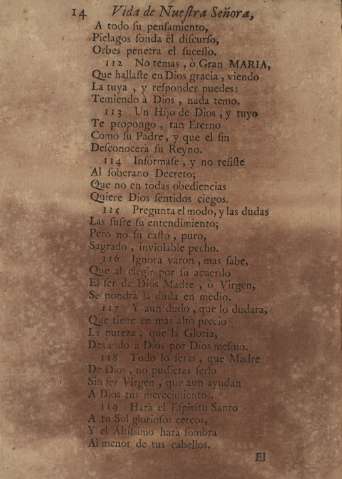 14 Vida de Nuestra Señora,
A todo su pensamiento,
Pielagos sonda el discurso,
Orbes penetra el sucesso.
112 No temas, ò Gran MARIA,
Que hallaste en Dios gracia, viendo
La tuya, y responder puedes:
Temiendo à Dios, nada temo.
113 Un Hijo de Dios, y tuyo
Te propongo, tan Eterno
Como su Padre, y que el fin
Desconocerà su Reyno.
114 Informase, y no resiste
Al soberano Decreto;
Que no en todas obediencias
Quiere Dios sentidos ciegos.
115 Pregunta el modo, y las dudas
Las sufre su entendimiento;
Pero no su casto, puro,
Sagrado, inviolable pecho.
116 Ignora varon, mas sabe,
Que al elegir por su acuerdo
El ser de Dios Madre, ò Virgen,
Se pondrà la duda en medio.
117 Y aun dudo, que lo dudara,
Que tiene en mas alto precio
La pureza, que la Gloria,
Dexando à Dios por Dios mesmo.
118 Todo lo seràs, que Madre
De Dios, no pudieras serlo
Sin ser Virgen, que aun ayudan
A Dios tus merecimientos.
119 Harà el Espiritu Santo
A tu Sol gloriosos cercos,
Y el Altissimo harà sombra
Al menor de tus cabellos.
El